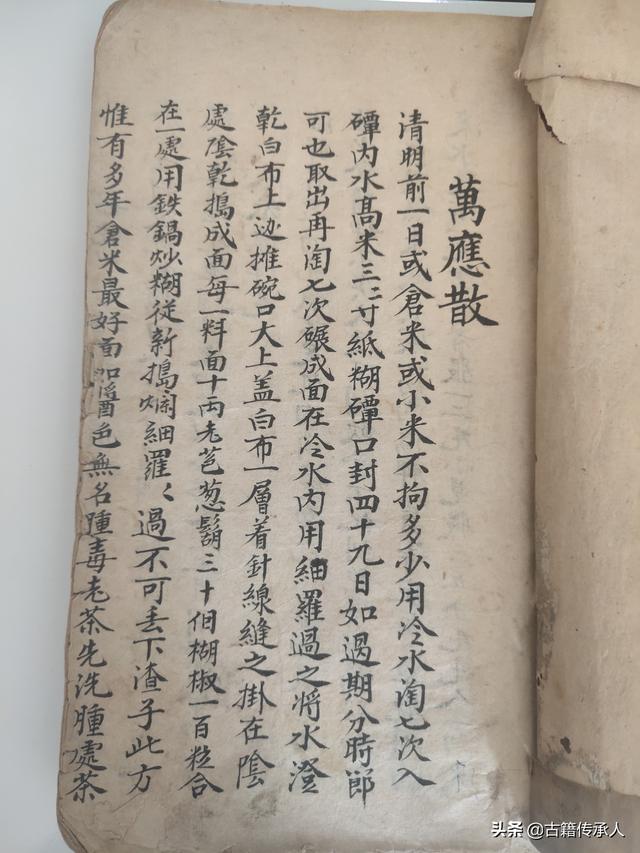 萬應散
清明前一日或倉米或小米不拘多少用冷水淘七次入
磹内水髙米三二寸紙糊磹口封四十九日如過期分時郎
可也取出再淘七次碾成面在冷水内用細羅過之将水澄
乾白布上边摊碗口大上盖白布一層着針線縫之掛在陰
處陰乾搗成面每一料面十両老芭葱鬍三十個椒一百粒合
在一處用鉄鍋炒糊従新搗爛細羅〻過不可丢下渣子此方
惟有多年倉米最好面如醬色無名踵毒老茶先洗腫處茶
头条 @古籍传承人